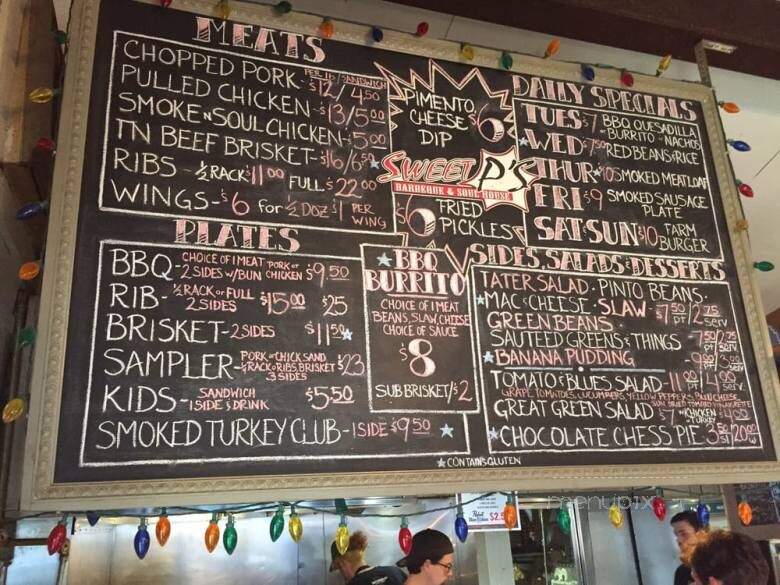 MEATS
PER LB / SANDWICH
CHOPPED PORK - $12/4.50
PULLED CHICKEN - $13/5.00
SMOKE N SOUL CHICKEN - $5.00
TN BEEF BRISKET - $16/6.50
RIBS - 1/2 RACK $11.00 FULL $22.00
WINGS - $6 for 1/2 DOZ $1 PER WING
PIMENTO
CHEESE
DIP
$6
SWEET P'S
BARBEQUE & SOUL HOUSE
$6 FRIED
PICKLES
DAILY SPECIALS
TUES $7 BBQ QUESADILLA
- BURRITO - NACHOS
WED $7.50 RED BEANS & RICE
THUR $10 SMOKED MEATLOAF
FRI $9 SMOKED SAUSAGE
PLATE
SAT-SUN $10 FARM
BURGER
PLATES
BBQ - CHOICE OF 1 MEAT PORK or
2 SIDES W/BUN CHICKEN $9.50
RIB - 1/2 RACK or FULL
2 SIDES $15.00 $25
BRISKET - 2 SIDES $11.50
SAMPLER - PORK or CHICK SAND
1/4 RACK or RIBS, BRISKET $23
3 SIDES
KIDS - SANDWICH
1 SIDE & DRINK $5.50
SMOKED TURKEY CLUB - 1 SIDE $9.50
BBQ
BURRITO
CHOICE OF 1 MEAT
BEANS, SLAW, CHEESE
CHOICE OF SAUCE
$8
SUB BRISKET/$2
SIDES, SALADS & DESSERTS
TATER SALAD · PINTO BEANS ·
MAC & CHEESE · SLAW - $7.50 PT / 2.75 SERV
GREEN BEANS ·
SAUTEED GREENS & THINGS - 7.50 PT / 2.75 SERV
BANANA PUDDING - 9.00 PT / 3.00 SERV
TOMATO & BLUES SALAD - 11.00 PT / 4.00 SERV
GRAPE TOMATOES, CUCUMBERS, YELLOW PEPPERS, BLEU CHEESE
SUN DRIED TOMATO VINAIGRETTE
GREAT GREEN SALAD $7 W/CHICKEN or TURKEY
CHOCOLATE CHESS PIE 3.50
CONTAINS GLUTEN
menupix
$2.5